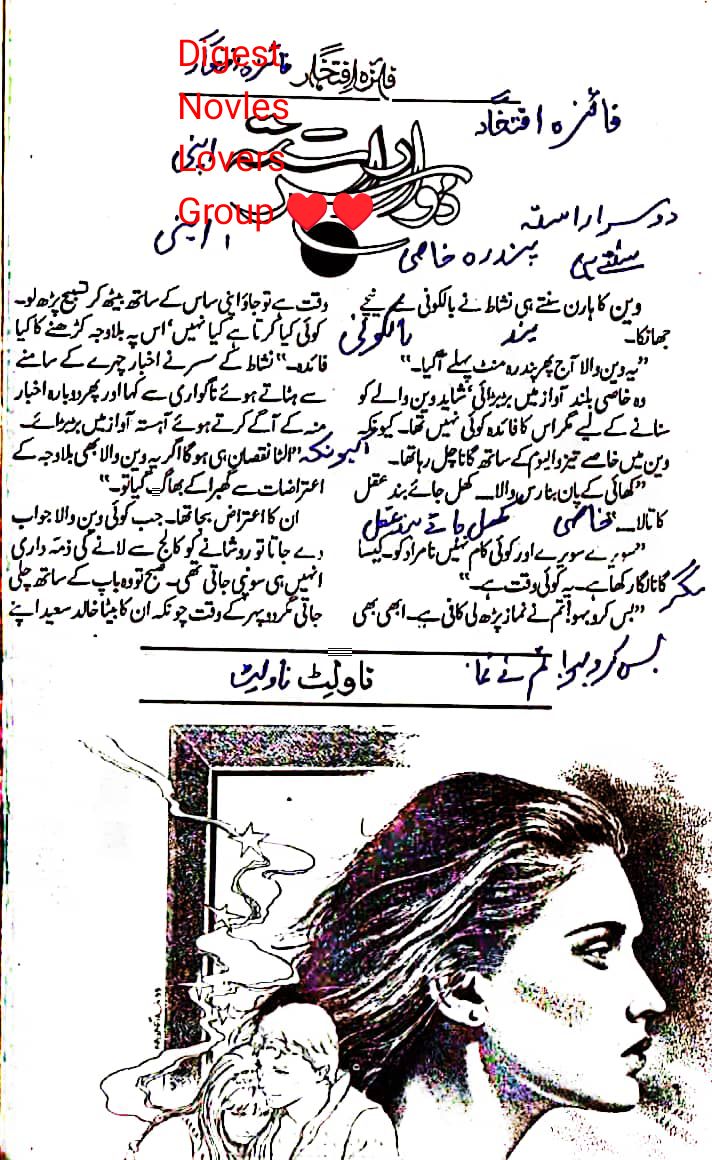 Digest
Novles
Lovers
Group ❤️❤️
فائزہ افتخار
فائزہ افتخار
دوسرا راستہ
فائزہ افتخار
اپنی
دوسرا راستہ
سنتے ہی
پندرہ خاصی
اپنی
وین کا ہارن سنتے ہی نشاط نے بالکونی سے نیچے
جھانکا۔
بند
بالکونی
”یہ وین والا آج پھر پندرہ منٹ پہلے آگیا۔“
وہ خاصی بلند آواز میں بڑبڑائی‘ شاید وین والے کو
سنانے کے لیے مگر اس کا فائدہ کوئی نہیں تھا۔ کیونکہ
وین میں خاصے تیز والیوم کے ساتھ گانا چل رہا تھا۔
کیونکہ
”کھائی کے پان بنارس والا... کھل جائے بند عقل
کا تالا...“
خاصی
کھل جائے بند عقل
”سویرے سویرے اور کوئی کام نہیں نامراد کو۔ کیسا
گانا لگا رکھا ہے۔ یہ کوئی وقت ہے۔“
مگر
”بس کرو بہو! تم نے نماز پڑھ لی کافی ہے۔ ابھی بھی
بس کرو بہو! تم نے نما
وقت ہے تو جاؤ اپنی ساس کے ساتھ بیٹھ کر تسبیح پڑھ لو۔
کوئی کیا کرتا ہے کیا نہیں‘ اس پہ بلاوجہ کڑھنے کا کیا
فائدہ۔“ نشاط کے سسر نے اخبار چہرے کے سامنے
سے ہٹاتے ہوئے ناگواری سے کہا اور پھر دوبارہ اخبار
منہ کے آگے کرتے ہوئے آہستہ آواز میں بڑبڑائے۔
”الٹا نقصان ہی ہوگا اگر یہ وین والا بھی بلاوجہ کے
اعتراضات سے گھبرا کے بھاگ گیا تو۔“
ان کا اعتراض بجا تھا۔ جب کوئی وین والا جواب
دے جاتا تو روشانے کو کالج سے لانے کی ذمہ داری
انہیں ہی سونپی جاتی تھی۔ صبح تو وہ باپ کے ساتھ چلی
جاتی مگر دوپہر کے وقت چونکہ ان کا بیٹا خالد سعید اپنے
ناولٹ ناولٹ